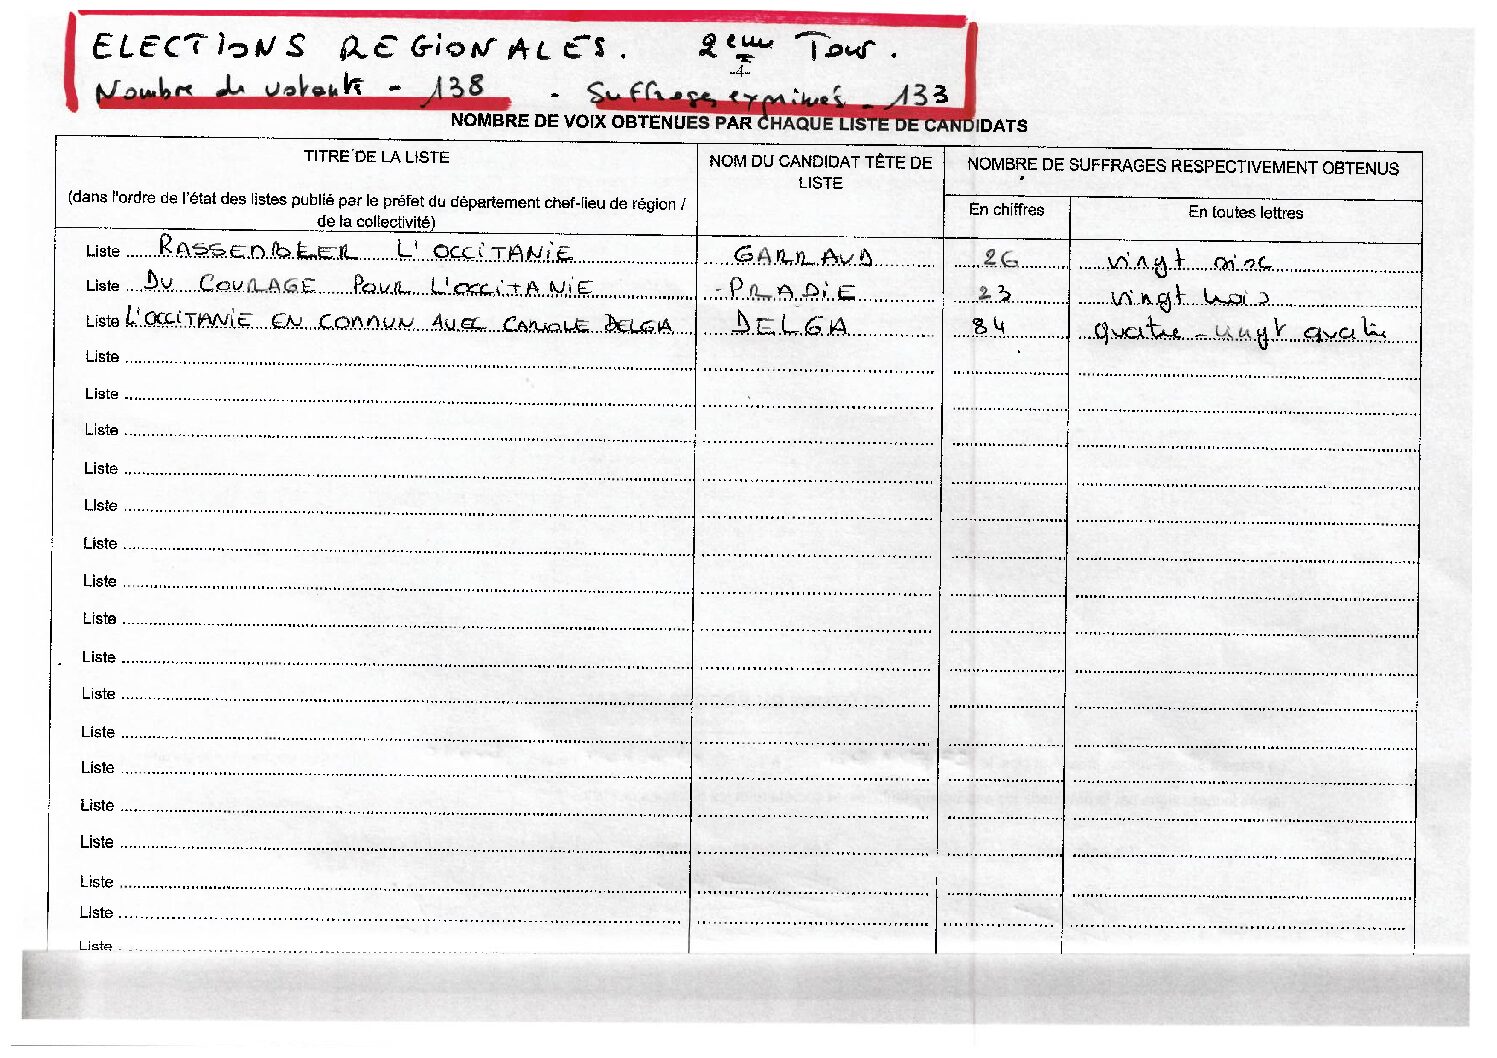 ELECTIONS REGIONALES. 2ème Tour.
-4-
Nombre de votants - 138 - Suffrages exprimés - 133
NOMBRE DE VOIX OBTENUES PAR CHAQUE LISTE DE CANDIDATS
TITRE DE LA LISTE
(dans l'ordre de l'état des listes publié par le préfet du département chef-lieu de région /
de la collectivité)
NOM DU CANDIDAT TÊTE DE
LISTE
NOMBRE DE SUFFRAGES RESPECTIVEMENT OBTENUS
En chiffres
En toutes lettres
Liste RASSEMBLER L'OCCITANIE GARRAUD 26 vingt six
Liste DU COURAGE POUR L'OCCITANIE - PRADIE 23 vingt trois
Liste L'OCCITANIE EN COMMUN AVEC CAROLE DELGA DELGA 84 quatre-vingt quatre
Liste
Liste
Liste
Liste
Liste
Liste
Liste
Liste
Liste
Liste
Liste
Liste
Liste
Liste
Liste
Liste
Liste